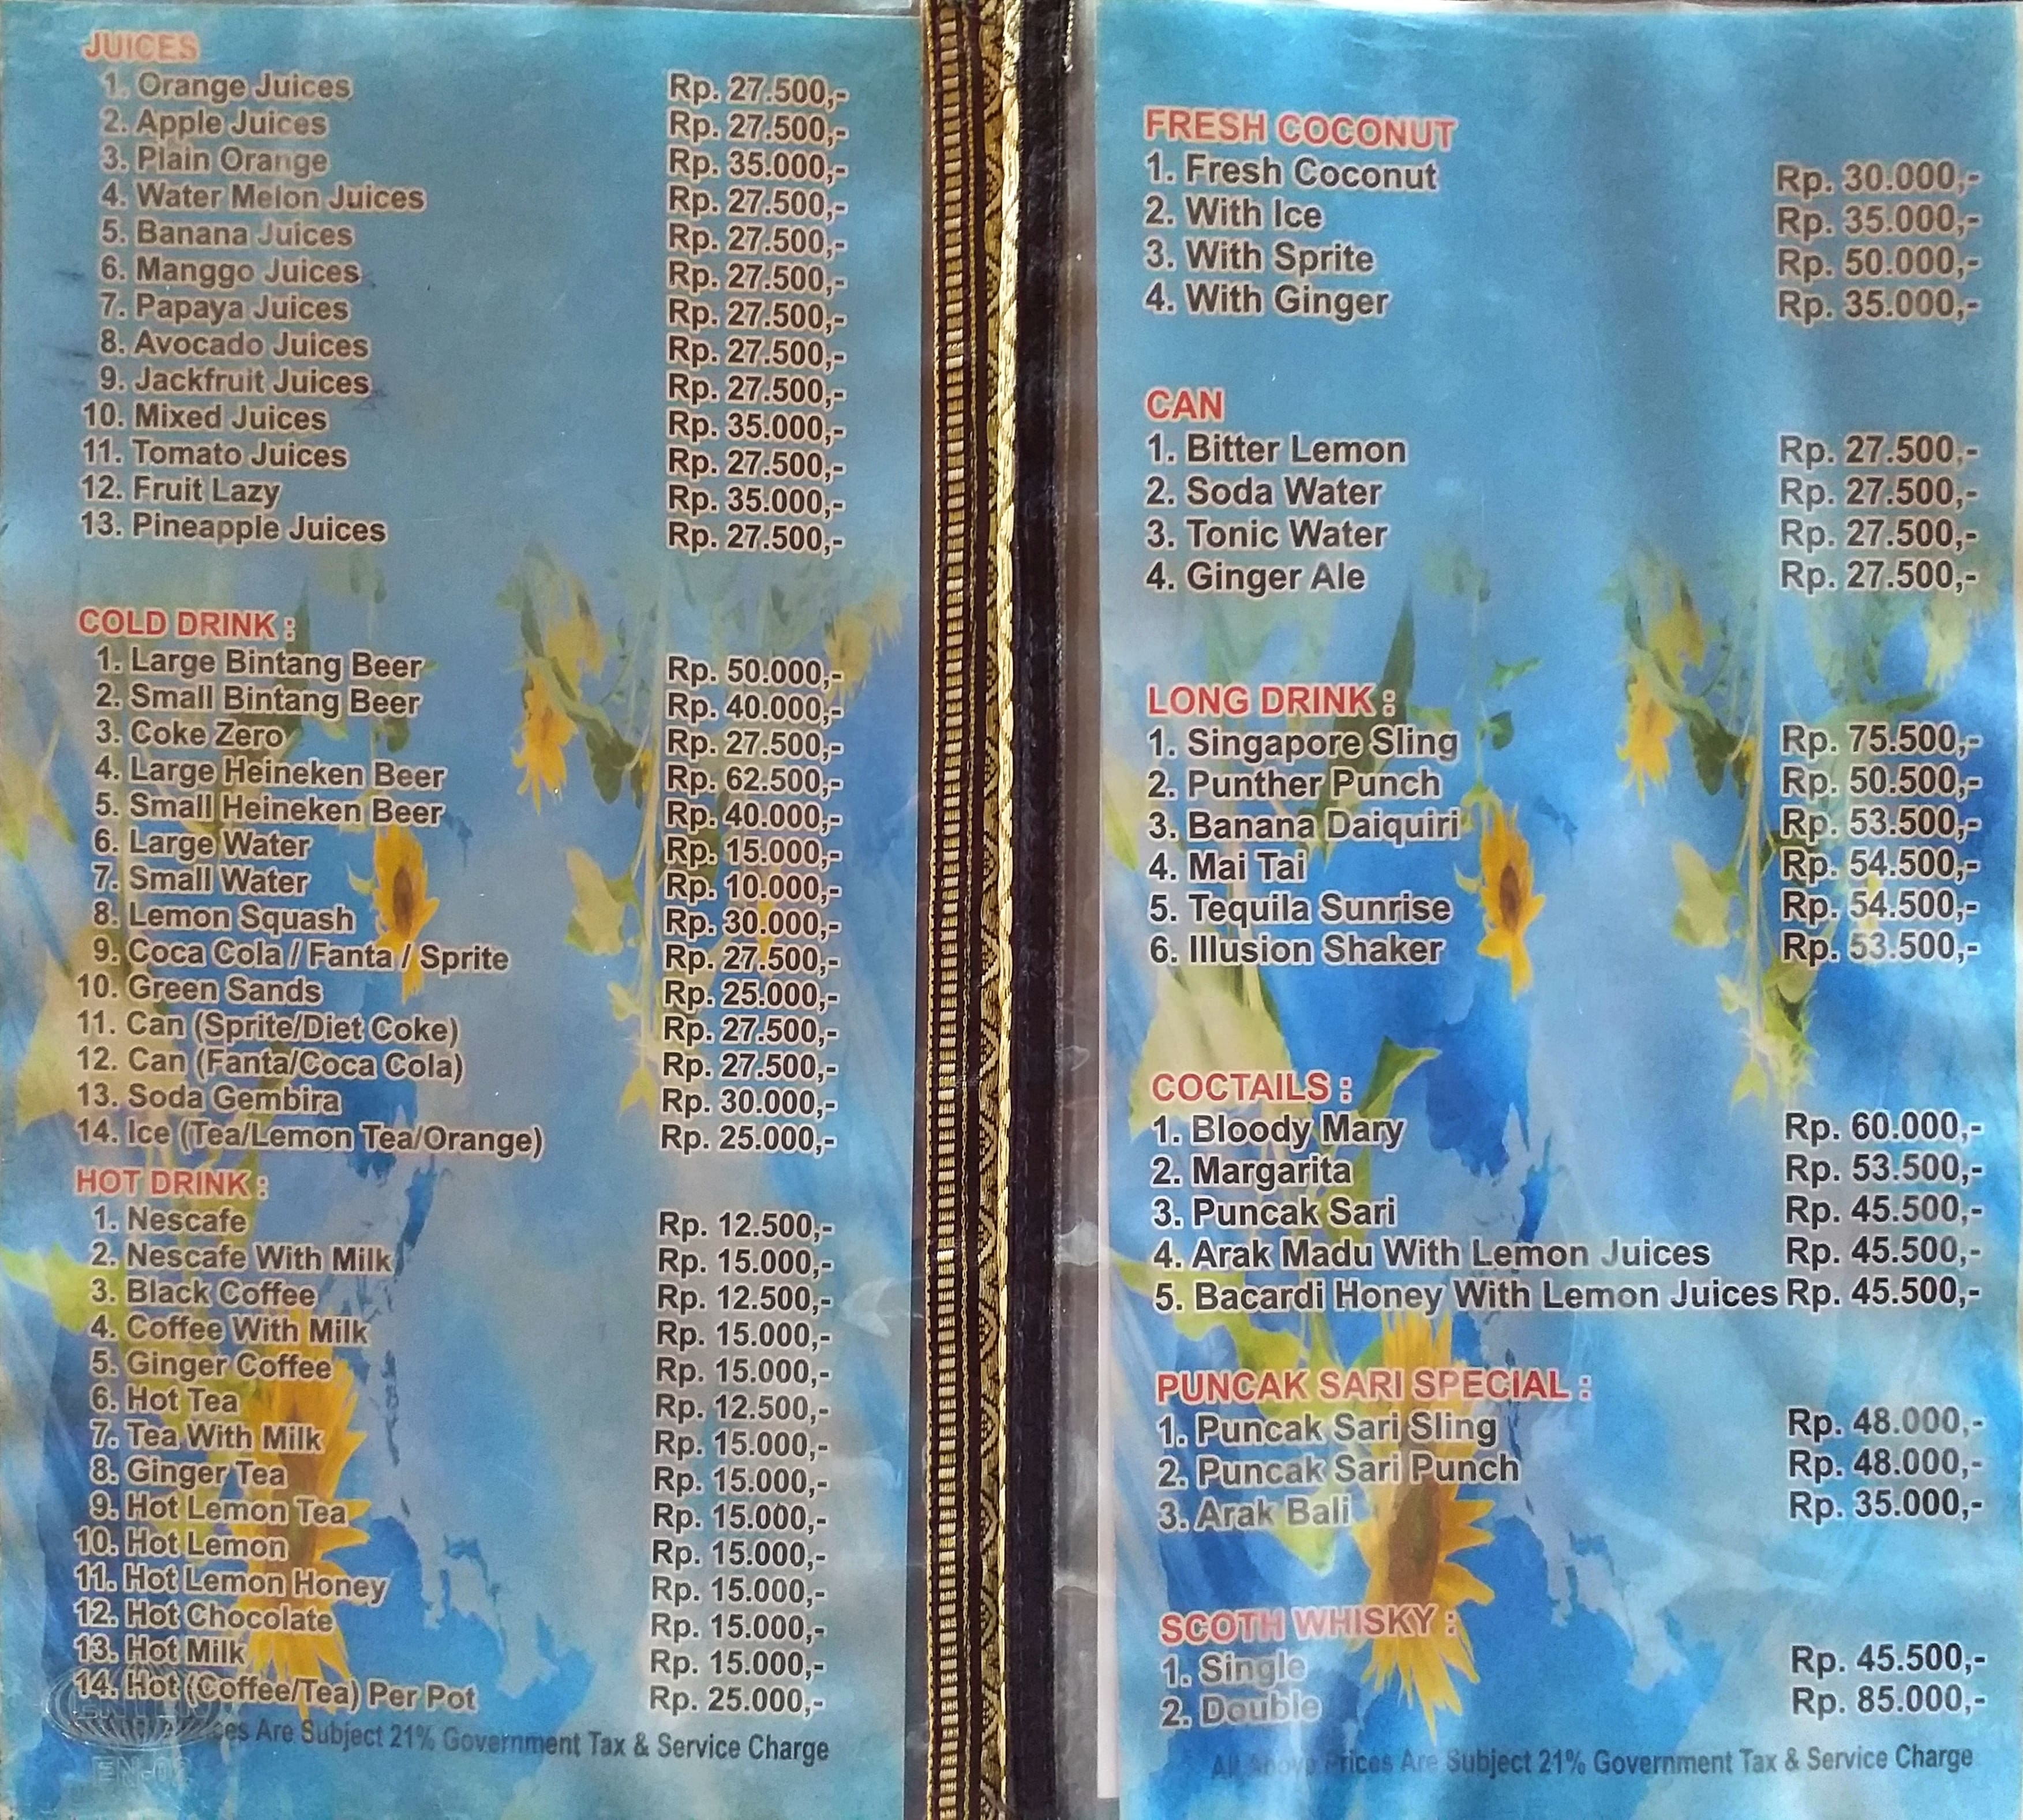 JUICES
1. Orange Juices Rp. 27.500,-
2. Apple Juices Rp. 27.500,-
3. Plain Orange Rp. 35.000,-
4. Water Melon Juices Rp. 27.500,-
5. Banana Juices Rp. 27.500,-
6. Manggo Juices Rp. 27.500,-
7. Papaya Juices Rp. 27.500,-
8. Avocado Juices Rp. 27.500,-
9. Jackfruit Juices Rp. 27.500,-
10. Mixed Juices Rp. 35.000,-
11. Tomato Juices Rp. 27.500,-
12. Fruit Lazy Rp. 35.000,-
13. Pineapple Juices Rp. 27.500,-
COLD DRINK :
1. Large Bintang Beer Rp. 50.000,-
2. Small Bintang Beer Rp. 40.000,-
3. Coke Zero Rp. 27.500,-
4. Large Heineken Beer Rp. 62.500,-
5. Small Heineken Beer Rp. 40.000,-
6. Large Water Rp. 15.000,-
7. Small Water Rp. 10.000,-
8. Lemon Squash Rp. 30.000,-
9. Coca Cola / Fanta / Sprite Rp. 27.500,-
10. Green Sands Rp. 25.000,-
11. Can (Sprite/Diet Coke) Rp. 27.500,-
12. Can (Fanta/Coca Cola) Rp. 27.500,-
13. Soda Gembira Rp. 30.000,-
14. Ice (Tea/Lemon Tea/Orange) Rp. 25.000,-
HOT DRINK :
1. Nescafe Rp. 12.500,-
2. Nescafe With Milk Rp. 15.000,-
3. Black Coffee Rp. 12.500,-
4. Coffee With Milk Rp. 15.000,-
5. Ginger Coffee Rp. 15.000,-
6. Hot Tea Rp. 12.500,-
7. Tea With Milk Rp. 15.000,-
8. Ginger Tea Rp. 15.000,-
9. Hot Lemon Tea Rp. 15.000,-
10. Hot Lemon Rp. 15.000,-
11. Hot Lemon Honey Rp. 15.000,-
12. Hot Chocolate Rp. 15.000,-
13. Hot Milk Rp. 15.000,-
14. Hot (Coffee/Tea) Per Pot Rp. 25.000,-
Are Subject 21% Government Tax & Service Charge
FRESH COCONUT
1. Fresh Coconut Rp. 30.000,-
2. With Ice Rp. 35.000,-
3. With Sprite Rp. 50.000,-
4. With Ginger Rp. 35.000,-
CAN
1. Bitter Lemon Rp. 27.500,-
2. Soda Water Rp. 27.500,-
3. Tonic Water Rp. 27.500,-
4. Ginger Ale Rp. 27.500,-
LONG DRINK :
1. Singapore Sling Rp. 75.500,-
2. Punther Punch Rp. 50.500,-
3. Banana Daiquiri Rp. 53.500,-
4. Mai Tai Rp. 54.500,-
5. Tequila Sunrise Rp. 54.500,-
6. Illusion Shaker Rp. 53.500,-
COCTAILS :
1. Bloody Mary Rp. 60.000,-
2. Margarita Rp. 53.500,-
3. Puncak Sari Rp. 45.500,-
4. Arak Madu With Lemon Juices Rp. 45.500,-
5. Bacardi Honey With Lemon Juices Rp. 45.500,-
PUNCAK SARI SPECIAL :
1. Puncak Sari Sling Rp. 48.000,-
2. Puncak Sari Punch Rp. 48.000,-
3. Arak Bali Rp. 35.000,-
SCOTH WHISKY :
1. Single Rp. 45.500,-
2. Double Rp. 85.000,-
All Above Prices Are Subject 21% Government Tax & Service Charge